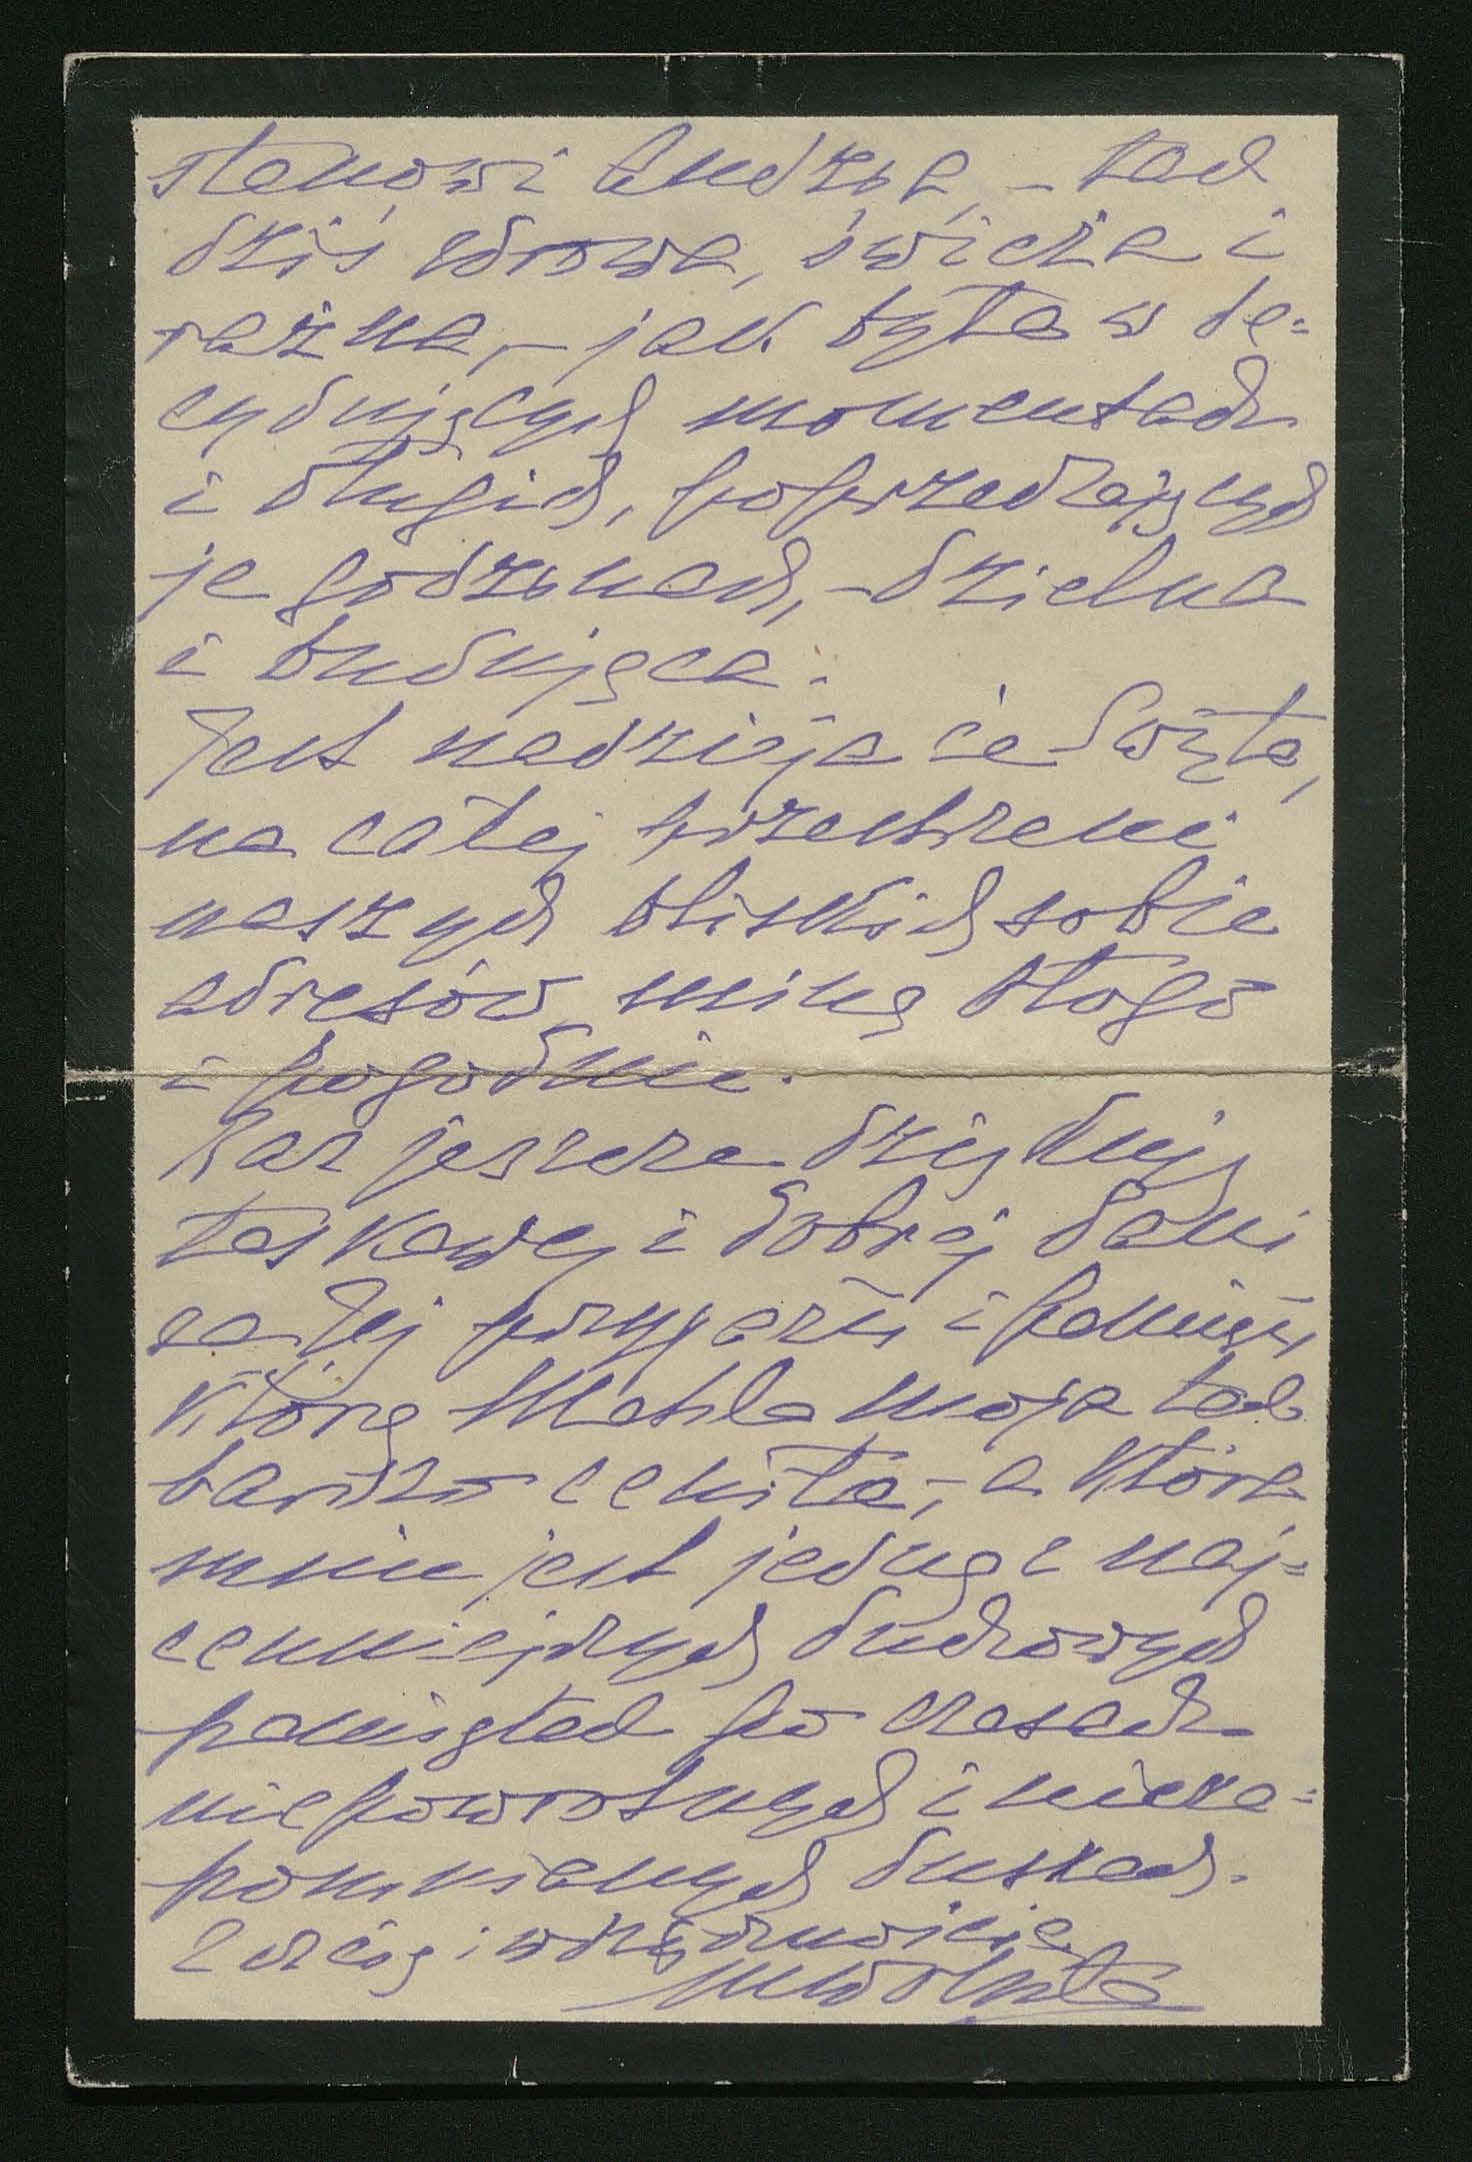 stanowi Ludzka, – tak
dziś zdrowa, świeża i
raźna, – jak była w de=
cydujących momentach
i długich, poprzedzających
je godzinach, – dzielna
i budująca.
Jest nadzieja że Święta,
na całej przestrzeni
naszych bliskich sobie
adresów, miną błogo
i pogodnie.
Raz jeszcze dziękuję
łaskawej i dobrej Pani
za Jej przyjaźń i pamięć,
którą Matka moja tak
bardzo ceniła, – a która
mnie jest jedną z naj=
cenniejszych duchowych
pamiątek po czasach
niepowrotnych i nieza=
pomnianych duszach.
Z czcią i wdzięcznością